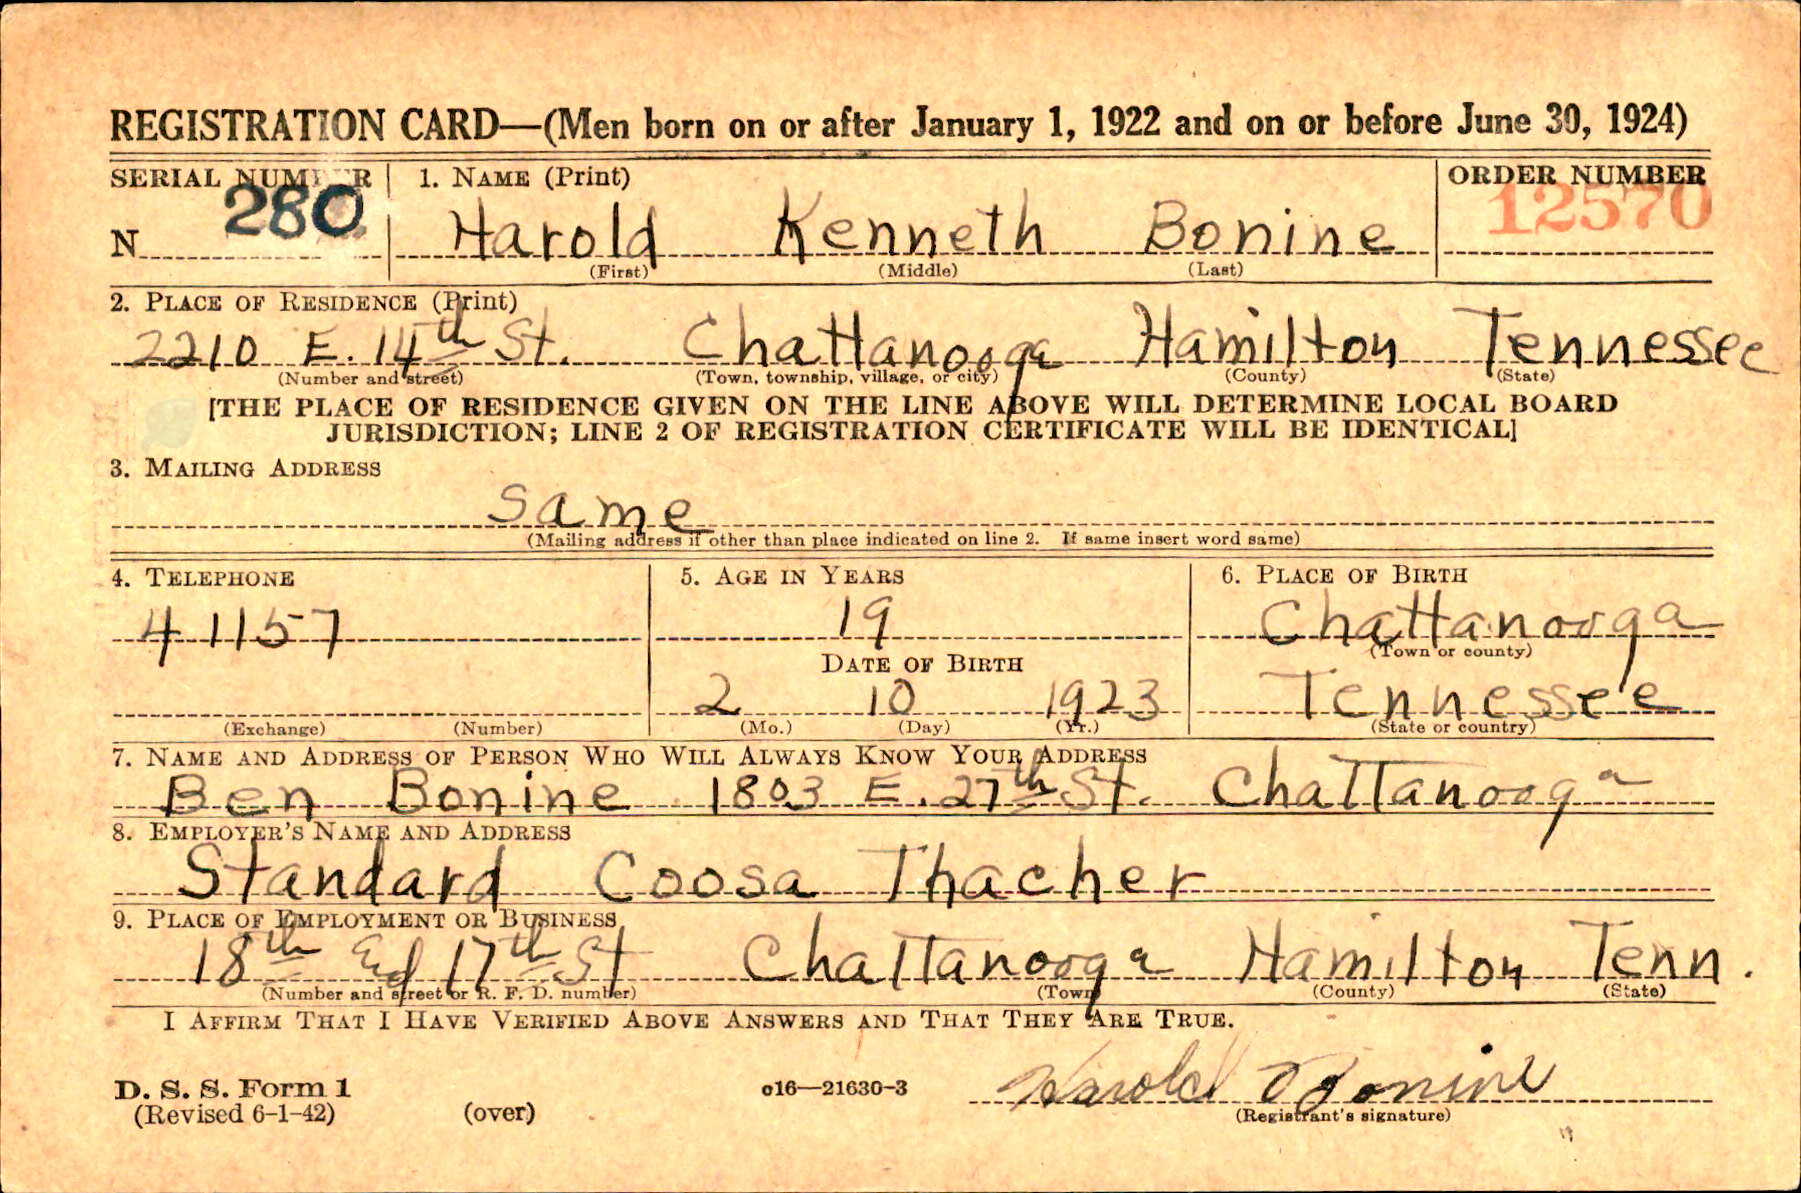 REGISTRATION CARD—(Men born on or after January 1, 1922 and on or before June 30, 1924)
SERIAL NUMBER
1. NAME (Print)
ORDER NUMBER
N 280
Harold Kenneth Bonine
12570
(First) (Middle) (Last)
2. PLACE OF RESIDENCE (Print)
2210 E. 14th St. Chattanooga Hamilton Tennessee
(Number and street) (Town, township, village, or city) (County) (State)
[THE PLACE OF RESIDENCE GIVEN ON THE LINE ABOVE WILL DETERMINE LOCAL BOARD
JURISDICTION; LINE 2 OF REGISTRATION CERTIFICATE WILL BE IDENTICAL]
3. MAILING ADDRESS
same
(Mailing address if other than place indicated on line 2. If same insert word same)
4. TELEPHONE
41157
(Exchange) (Number)
5. AGE IN YEARS
19
DATE OF BIRTH
2 10 1923
(Mo.) (Day) (Yr.)
6. PLACE OF BIRTH
Chattanooga
(Town or county)
Tennessee
(State or country)
7. NAME AND ADDRESS OF PERSON WHO WILL ALWAYS KNOW YOUR ADDRESS
Ben Bonine 1803 E. 27th St. Chattanooga
8. EMPLOYER'S NAME AND ADDRESS
Standard Coosa Thacher
9. PLACE OF EMPLOYMENT OR BUSINESS
18th 17th St Chattanooga Hamilton Tenn.
(Number and street or R. F. D. number) (Town) (County) (State)
I AFFIRM THAT I HAVE VERIFIED ABOVE ANSWERS AND THAT THEY ARE TRUE.
Harold Bonine
D. S. S. Form 1
(Revised 6-1-42) (over) c16—21630-3 (Registrant's signature)